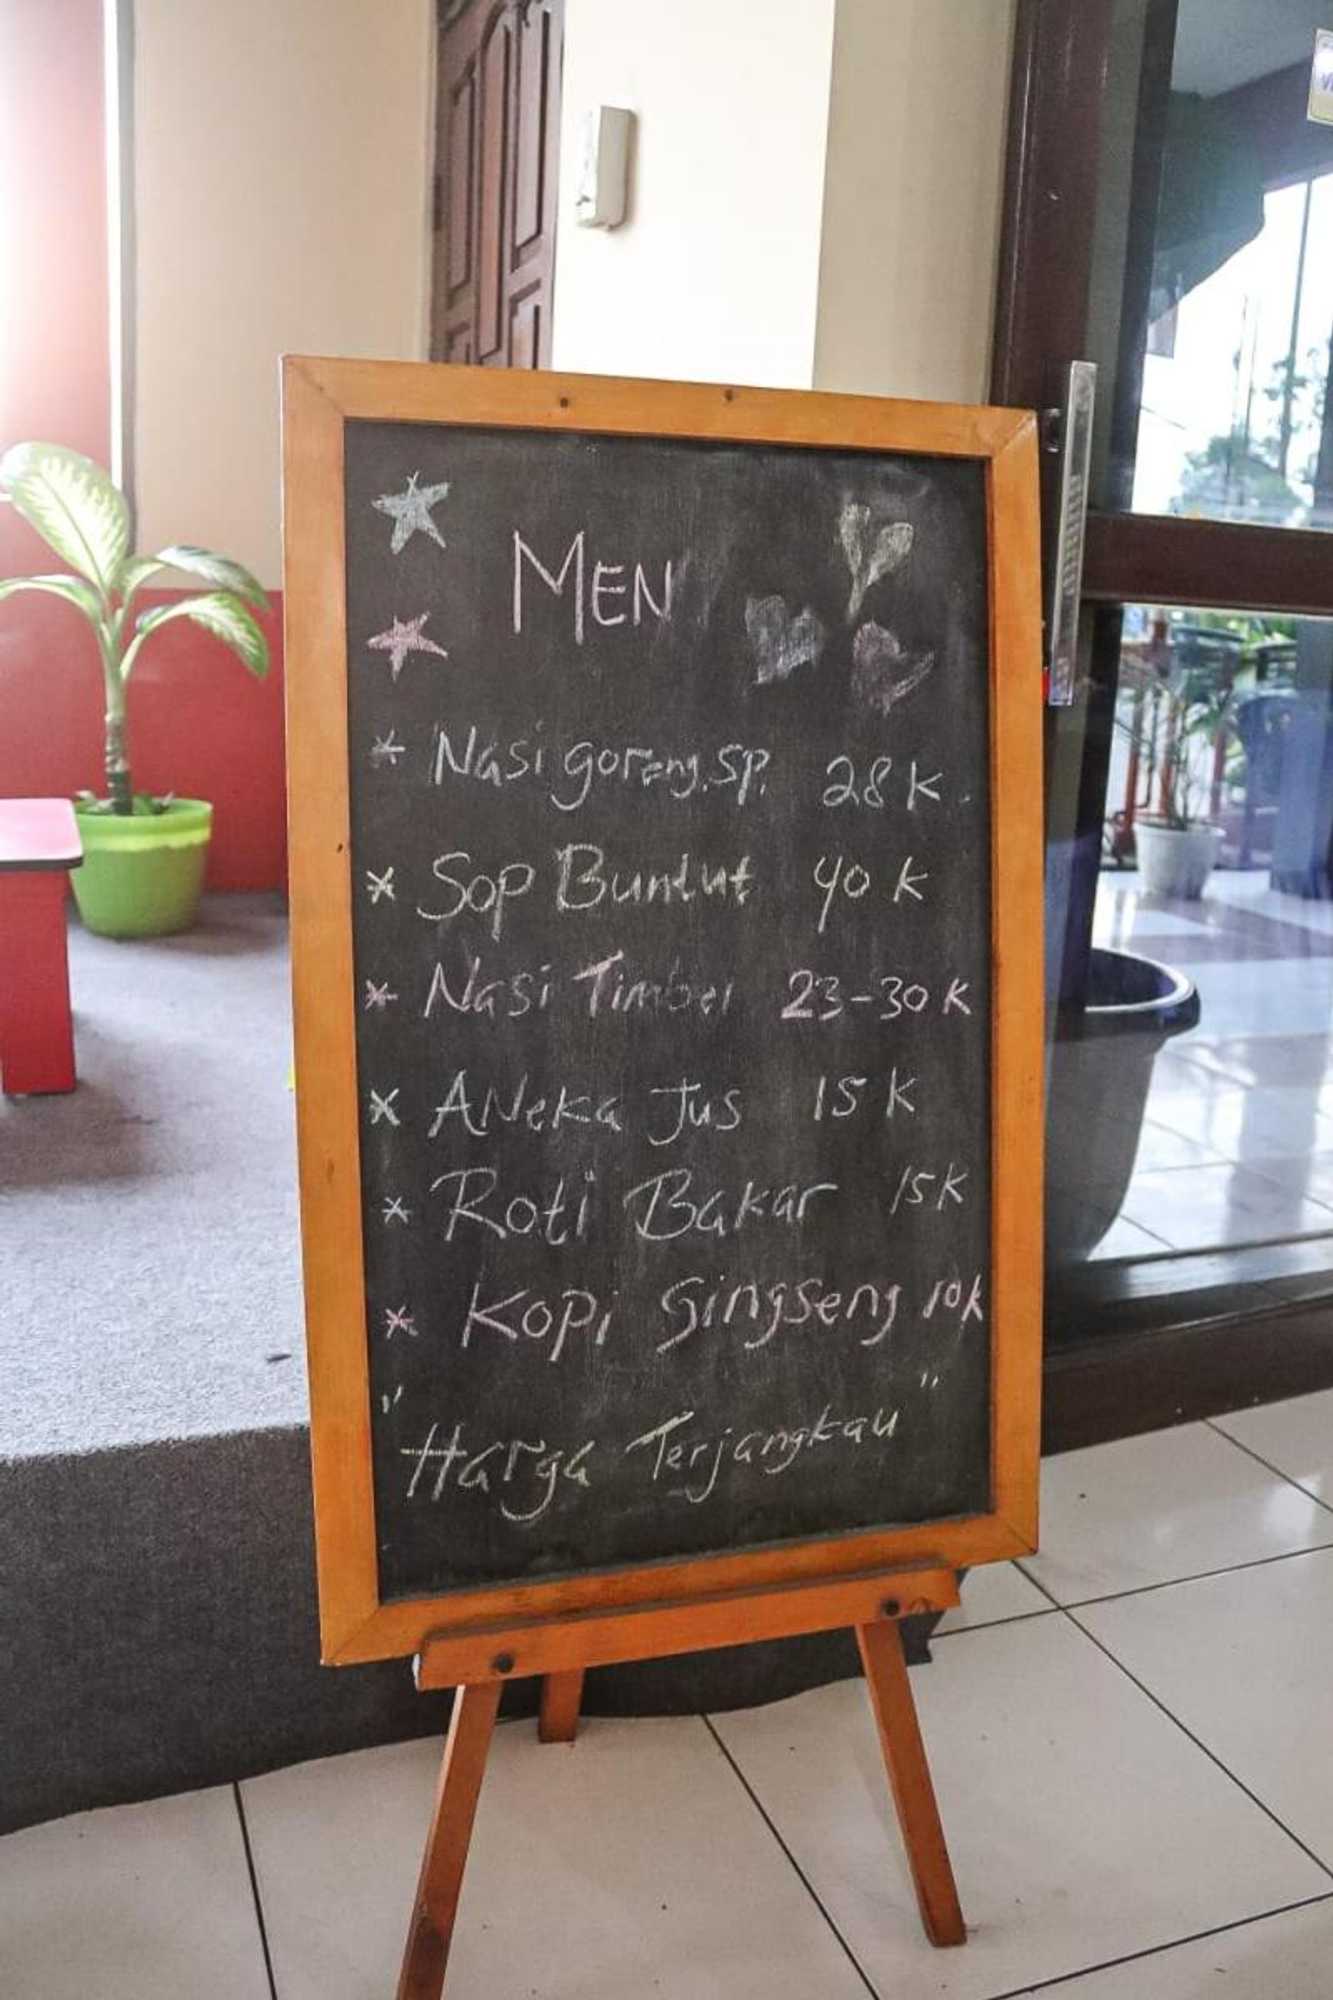 MEN
* Nasi goreng.sp. 28 K.
* Sop Buntut 40 K
* Nasi Timbel 23-30 K
* ANeKa Jus 15 K
* Roti Bakar 15K
* Kopi Gingseng 10k
"Harga Terjangkau"